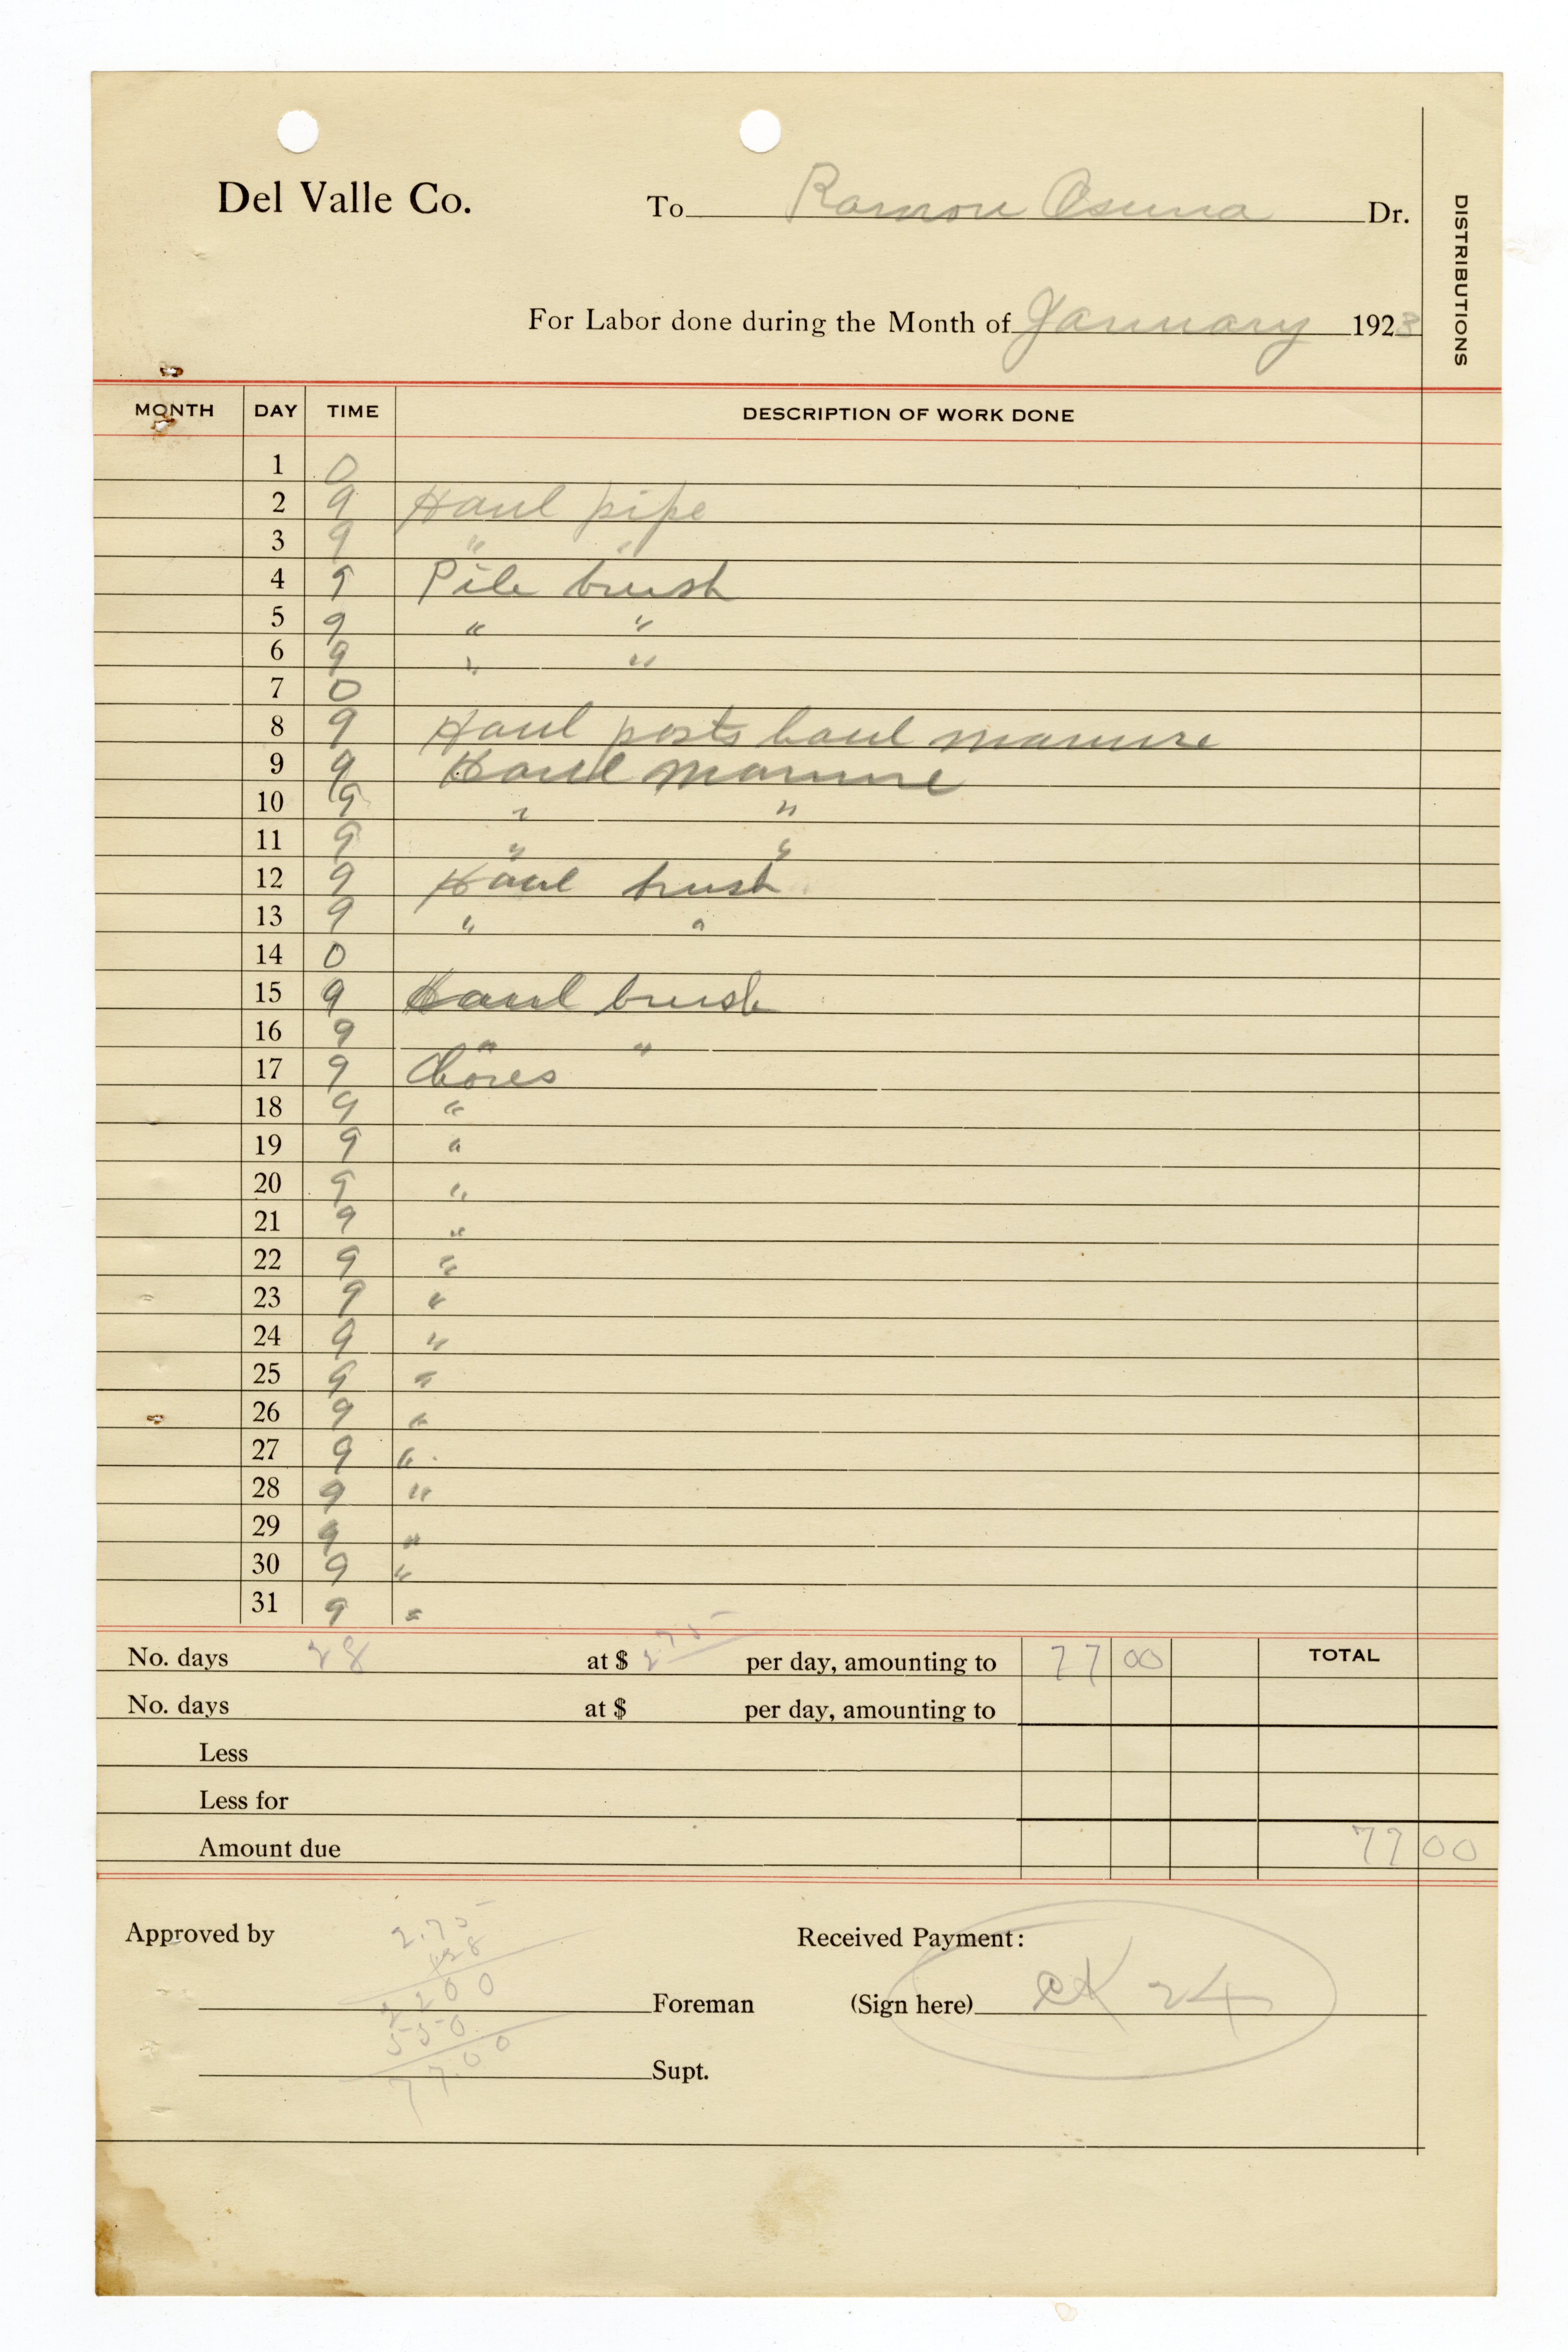 Del Valle Co.
To Ramon Osuna Dr.
For Labor done during the Month of January 1923
DISTRIBUTIONS
MONTH DAY TIME DESCRIPTION OF WORK DONE
1 0
2 9 Haul pipe
3 9 " "
4 9 Pile brush
5 9 " "
6 9 " "
7 0
8 9 Haul posts haul manure
9 9 Haul manure
10 9 " "
11 9 " "
12 9 Haul brush
13 9 " "
14 0
15 9 Haul brush
16 9 " "
17 9 Chores
18 9 "
19 9 "
20 9 "
21 9 "
22 9 "
23 9 "
24 9 "
25 9 "
26 9 "
27 9 "
28 9 "
29 9 "
30 9 "
31 9 "
No. days 28 at $ 2 75 per day, amounting to 77 00 TOTAL
No. days at $ per day, amounting to
Less
Less for
Amount due 77 00
Approved by
2.75
28
2200
550
77.00
Foreman
Supt.
Received Payment:
(Sign here) CK 24